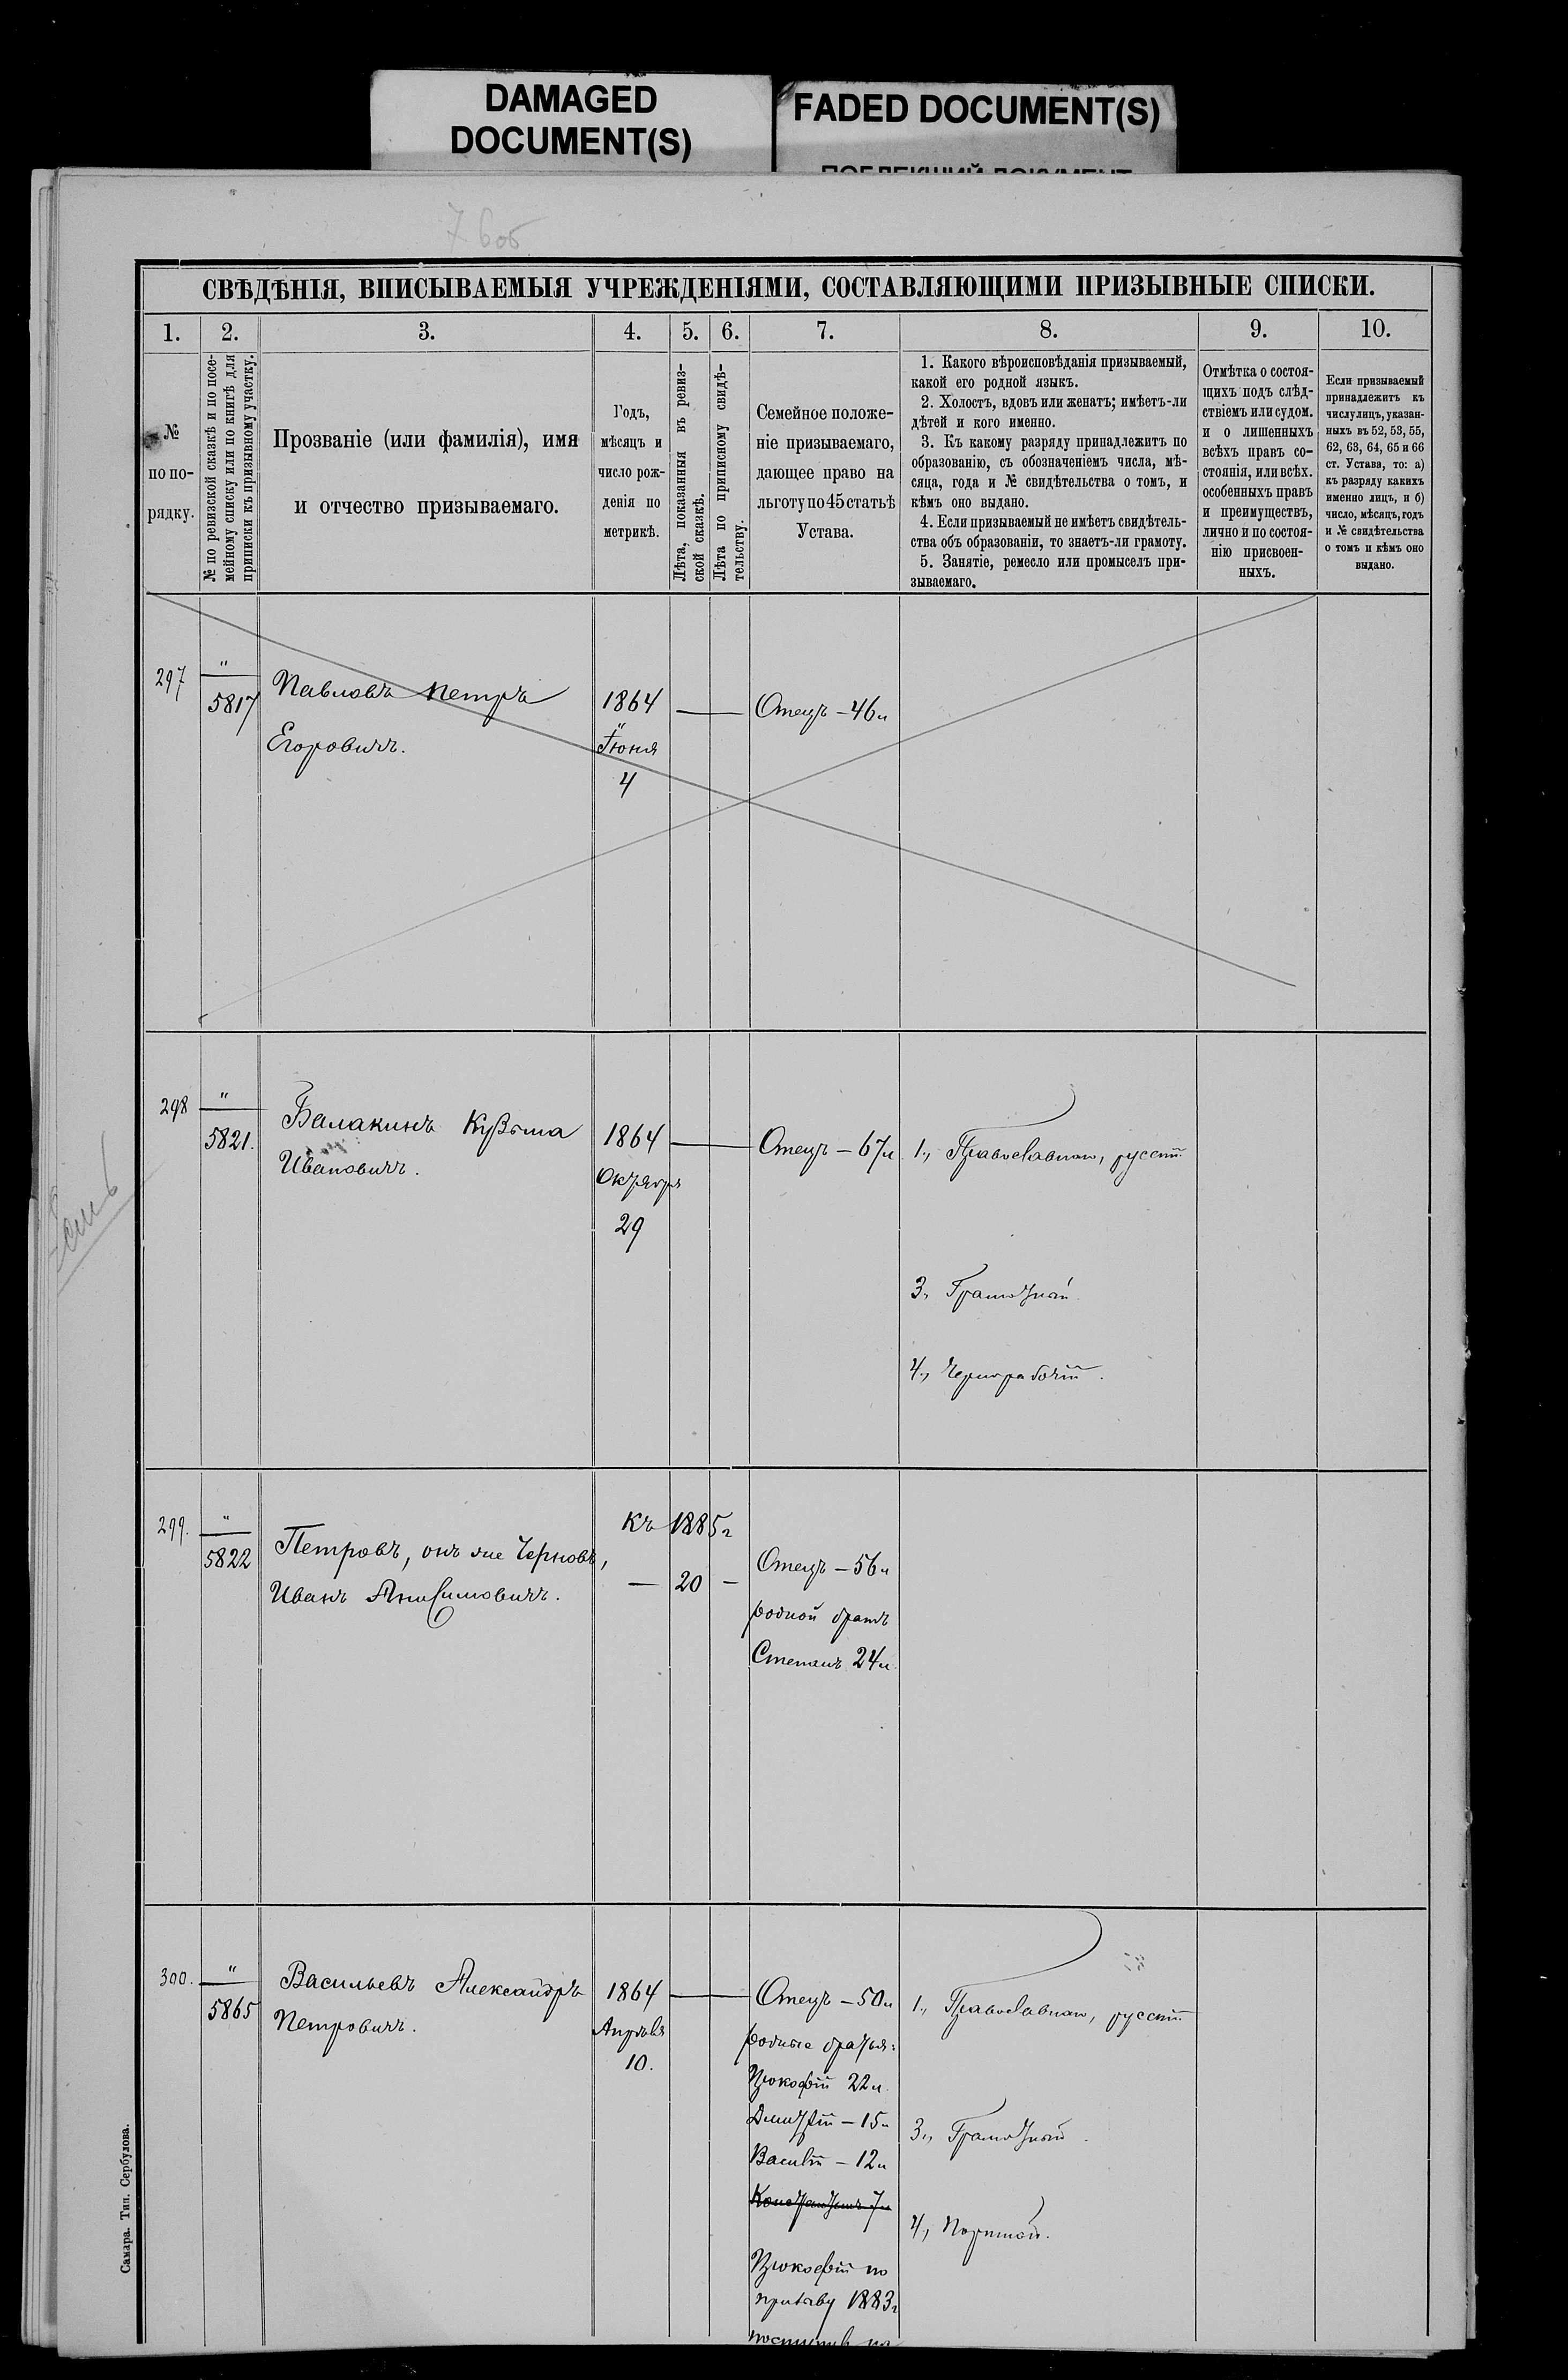 DAMAGED
DOCUMENT(S)
FADED DOCUMENT(S)
ПОБЛЕКШИЙ ДОКУМЕНТ
76об
СВѢДѢНІЯ, ВПИСЫВАЕМЫЯ УЧРЕЖДЕНІЯМИ, СОСТАВЛЯЮЩИМИ ПРИЗЫВНЫЕ СПИСКИ.
1. 2. 3. 4. 5. 6. 7. 8. 9. 10.
№
по по-
рядку.
№ по ревизской сказкѣ и по посе-
мейному списку или по книгѣ для
приписки къ призывному участку.
Прозваніе (или фамилія), имя
и отчество призываемаго.
Годъ,
мѣсяцъ и
число рож-
денія по
метрикѣ.
Лѣта, показанныя въ ревиз-
ской сказкѣ.
Лѣта по приписному свидѣ-
тельству.
Семейное положе-
ніе призываемаго,
дающее право на
льготу по 45 статьѣ
Устава.
1. Какого вѣроисповѣданія призываемый,
какой его родной языкъ.
2. Холостъ, вдовъ или женатъ; имѣетъ-ли
дѣтей и кого именно.
3. Къ какому разряду принадлежитъ по
образованію, съ обозначеніемъ числа, мѣ-
сяца, года и № свидѣтельства о томъ, и
кѣмъ оно выдано.
4. Если призываемый не имѣетъ свидѣтель-
ства объ образованіи, то знаетъ-ли грамоту.
5. Занятіе, ремесло или промыселъ при-
зываемаго.
Отмѣтка о состоя-
щихъ подъ слѣд-
ствіемъ или судом.
и о лишенныхъ
всѣхъ правъ со-
стоянія, или всѣх.
особенныхъ правъ
и преимуществъ,
лично и по состоя-
нію присвоен-
ныхъ.
Если призываемый
принадлежитъ къ
числу лицъ, указан-
ныхъ въ 52, 53, 55,
62, 63, 64, 65 и 66
ст. Устава, то: а)
къ разряду какихъ
именно лицъ, и б)
число, мѣсяцъ, годъ
и № свидѣтельства
о томъ и кѣмъ оно
выдано.
297
"
5817
Павловъ Петръ
Егоровичъ.
1864
Іюня
4
Отецъ – 46 л
298
"
5821.
Балакинъ Кузьма
Ивановичъ.
1864
Октября
29
Отецъ – 67 л.
1., Православнаго, русскій
3., Грамотный
4., Чернорабочій.
299.
"
5822
Петровъ, онъ же Черновъ,
Иванъ Анисимовичъ.
Къ 1885 г
— 20 —
Отецъ – 56 л
родной братъ
Степанъ 24 л
300.
"
5865
Васильевъ Александръ
Петровичъ.
1864
Апрѣля
10.
Отецъ – 50 л
родные братья:
Прокофій 22 л.
Дмитрій – 15 л
Василій – 12 л
Константинъ 7 л
Прокофій по
призыву 1883 г
1., Православнаго, русскій
3., Грамотный.
4., Портной.
Самара. Тип. Сербулова.